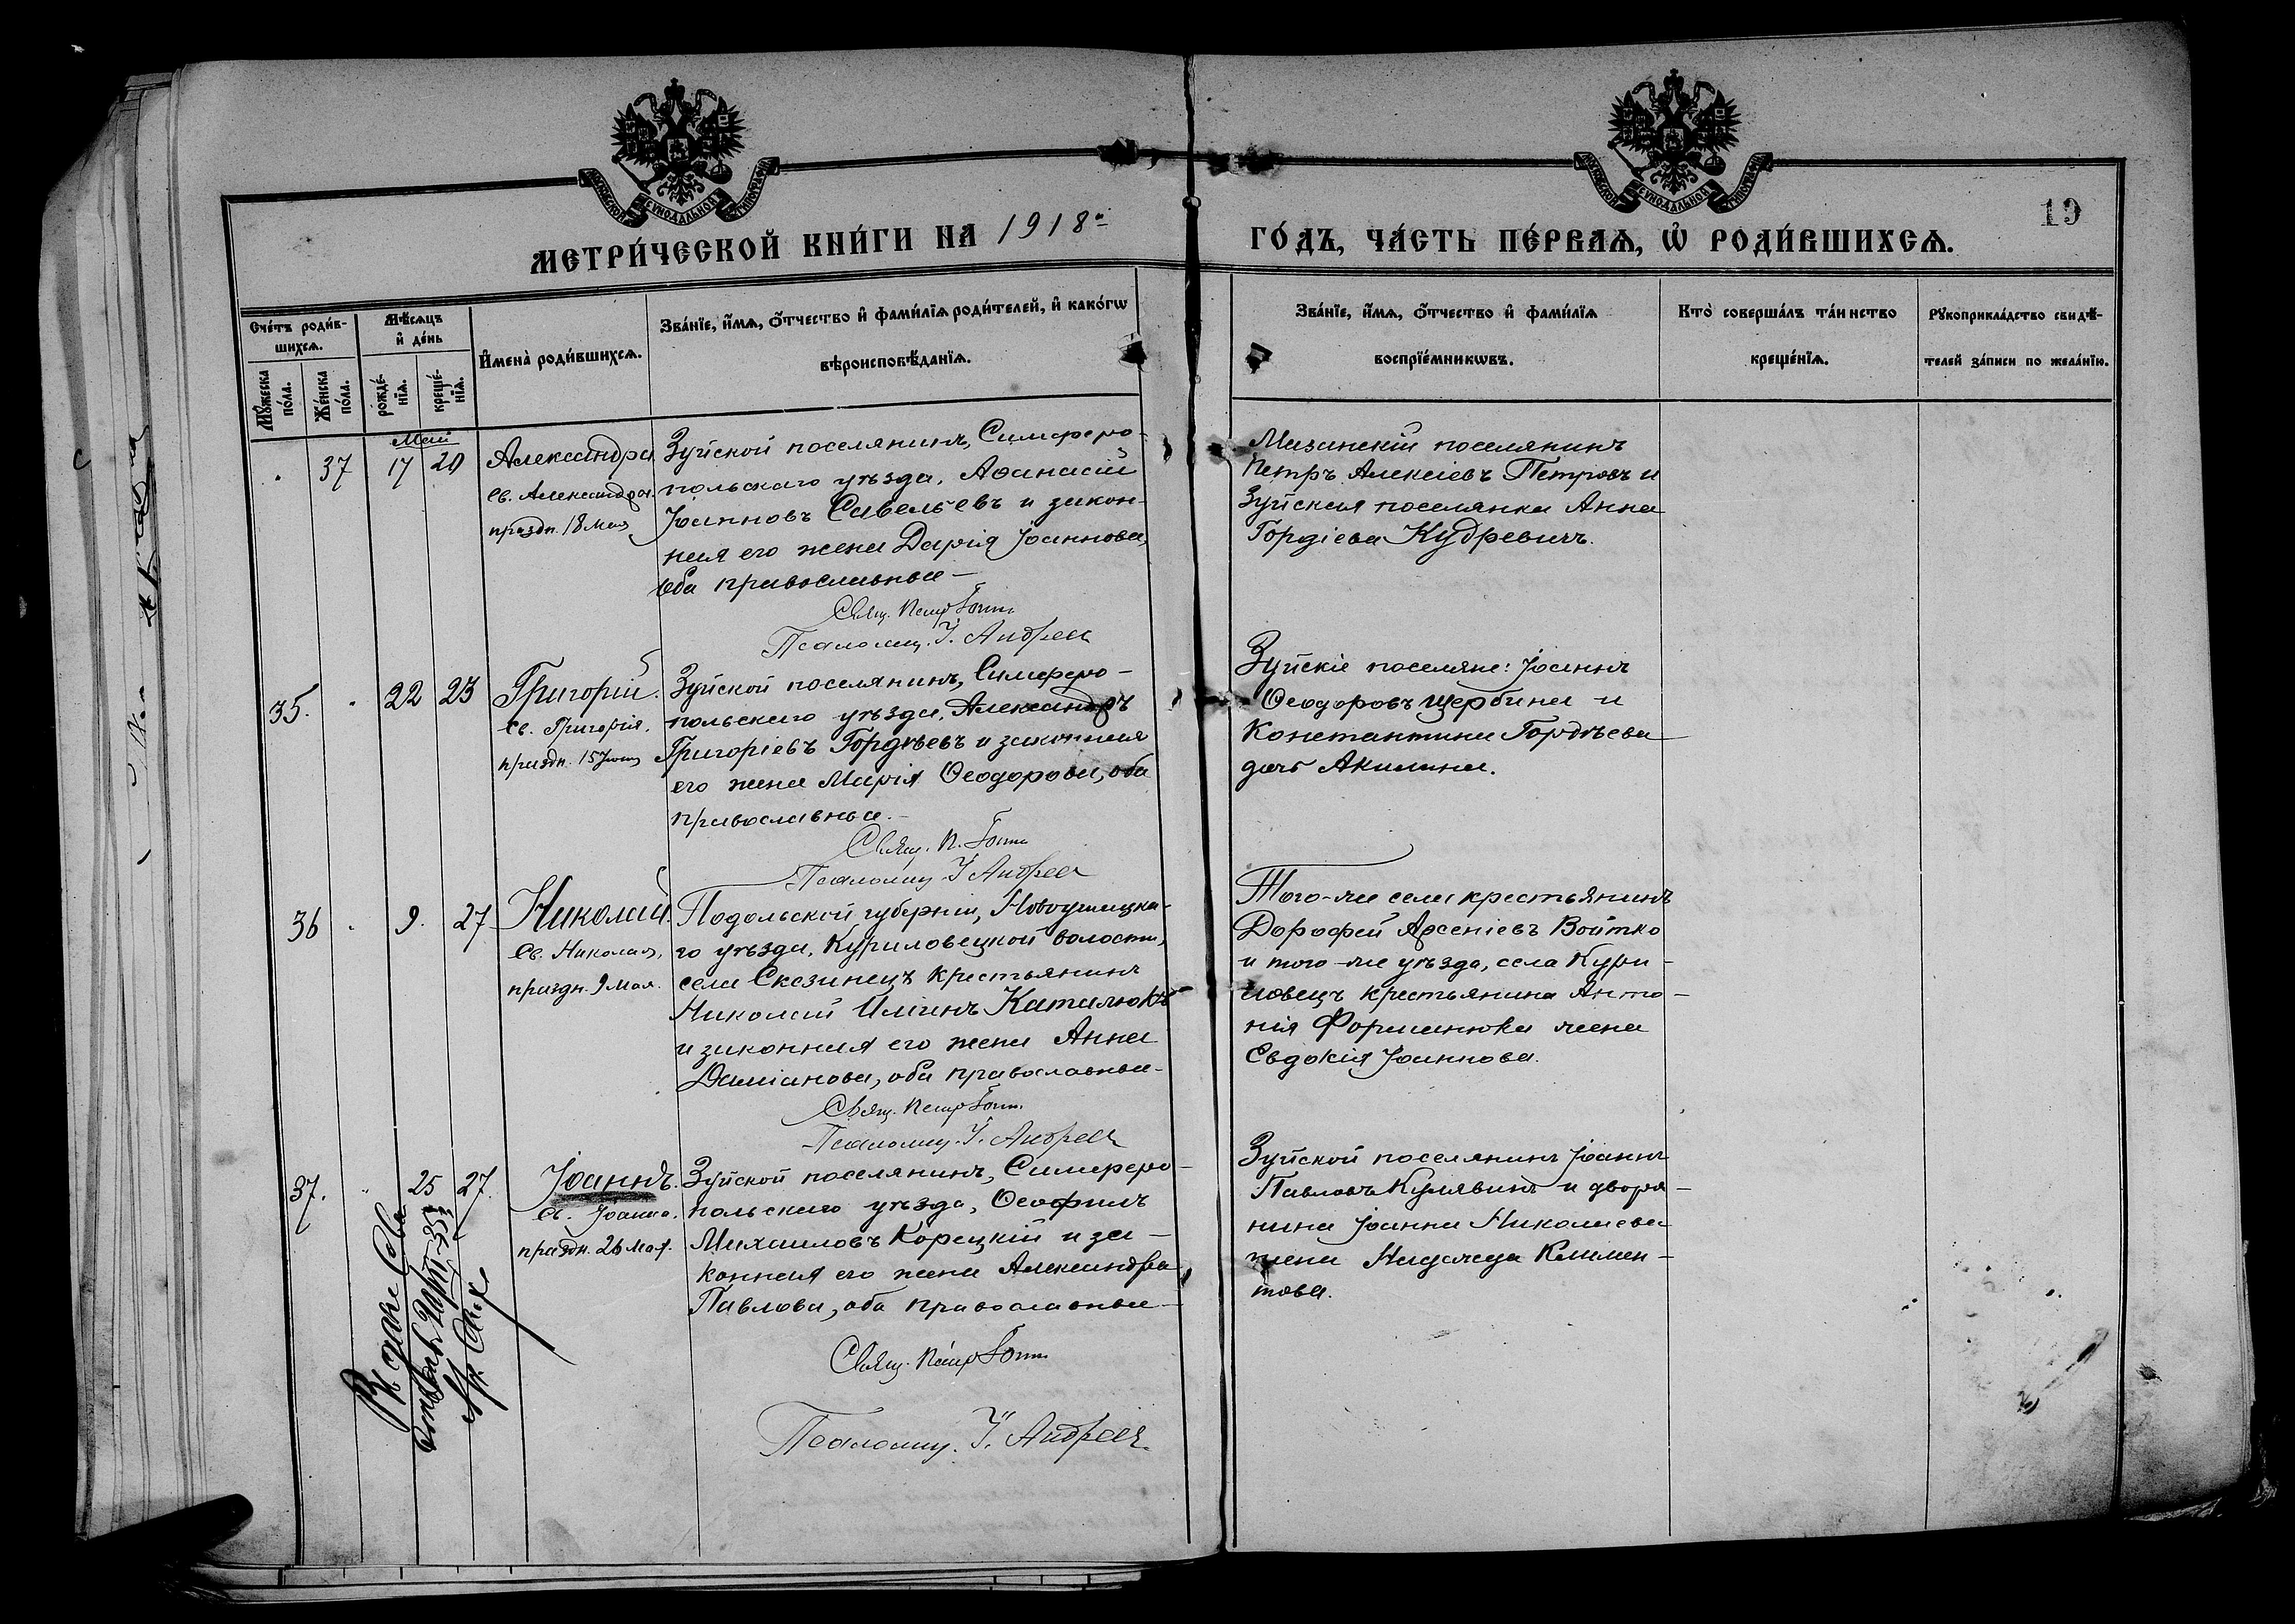 МОСКОВСКОЙ СУНОДАЛЬНОЙ ТИПОГРАФІИ
МОСКОВСКОЙ СУНОДАЛЬНОЙ ТИПОГРАФІИ
МЕТРИ́ЧЕСКОЙ КНИ́ГИ НА 1918-
ГО́ДЪ, ЧА́СТЬ ПЕ́РВАѦ, Ѡ҆ РОДИ́ВШИХСѦ.
19
Сче́тъ роди́в-
шихсѧ.
Мꙋ́жеска по́ла.
Же́нска по́ла.
Мѣ́сѧцъ
и҆ де́нь
рожде́-
нїѧ.
креще́-
нїѧ.
И҆мена̀ роди́вшихсѧ.
Зва́нїе, и҆́мѧ, ѻ҆́тчество и҆ фами́лїѧ роди́телей, и҆ како́гѡ
вѣроисповѣ́данїѧ.
Зва́нїе, и҆́мѧ, ѻ҆́тчество и҆ фами́лїѧ
воспрїе́мникѡвъ.
Кто̀ соверша́лъ та́инство
креще́нїѧ.
Рꙋкоприкла́дство свидѣ́-
телей за́писи по жела́нїю.
Май
37 17 20
Александра
Св. Александры.
праздн. 18 мая
Зуйской поселянинъ, Симферо-
польскаго уѣзда, Аѳанасій
Іоанновъ Савельевъ и закон-
ная его жена Дарія Іоаннова,
оба православные —
Свящ. Петръ
Псаломщ. І. Андреев
Мазанскій поселянинъ
Петръ Алексіевъ Петровъ и
Зуйская поселянка Анна
Гордіева Кудревичъ.
35. 22 23
Григорій.
Св. Григорія.
праздн. 15 Іюня
Зуйской поселянинъ, Симферо-
польскаго уѣзда, Александръ
Григоріевъ Гордѣевъ и законная
его жена Марія Ѳеодорова, оба
православные. —
Свящ. П.
Псаломщ. І. Андреев
Зуйскіе поселяне: Іоаннъ
Ѳеодоровъ Щербина и
Константина Гордѣева
дочь Акилина.
36 9. 27
Николай.
Св. Николая,
праздн. 9 Мая.
Подольской губерніи, Новоушицка-
го уѣзда, Куриловецкой волости,
села Сказинецъ крестьянинъ
Николай Иліинъ Катилюкъ
и законная его жена Анна
Даміанова, оба православные —
Свящ. Петръ
Псаломщ. І. Андреев
Того-же села крестьянинъ
Дорофей Арсеніевъ Войтко
и того-же уѣзда, села Кури-
ловецъ крестьянина Анто-
нія Форманюка жена
Евдокія Іоаннова.
37. 25 27.
Іоаннъ.
Св. Іоанна.
праздн. 26 Мая.
Зуйской поселянинъ, Симферо-
польскаго уѣзда, Ѳеофилъ
Михаиловъ Корецкій и за-
конная его жена Александра
Павлова, оба православные —
Свящ. Петръ
Псаломщ. І. Андреев.
Зуйской поселянинъ Іоаннъ
Павловъ Кулявинъ и дворя-
нина Іоанна Николаева
жена Надежда Климен-
това.